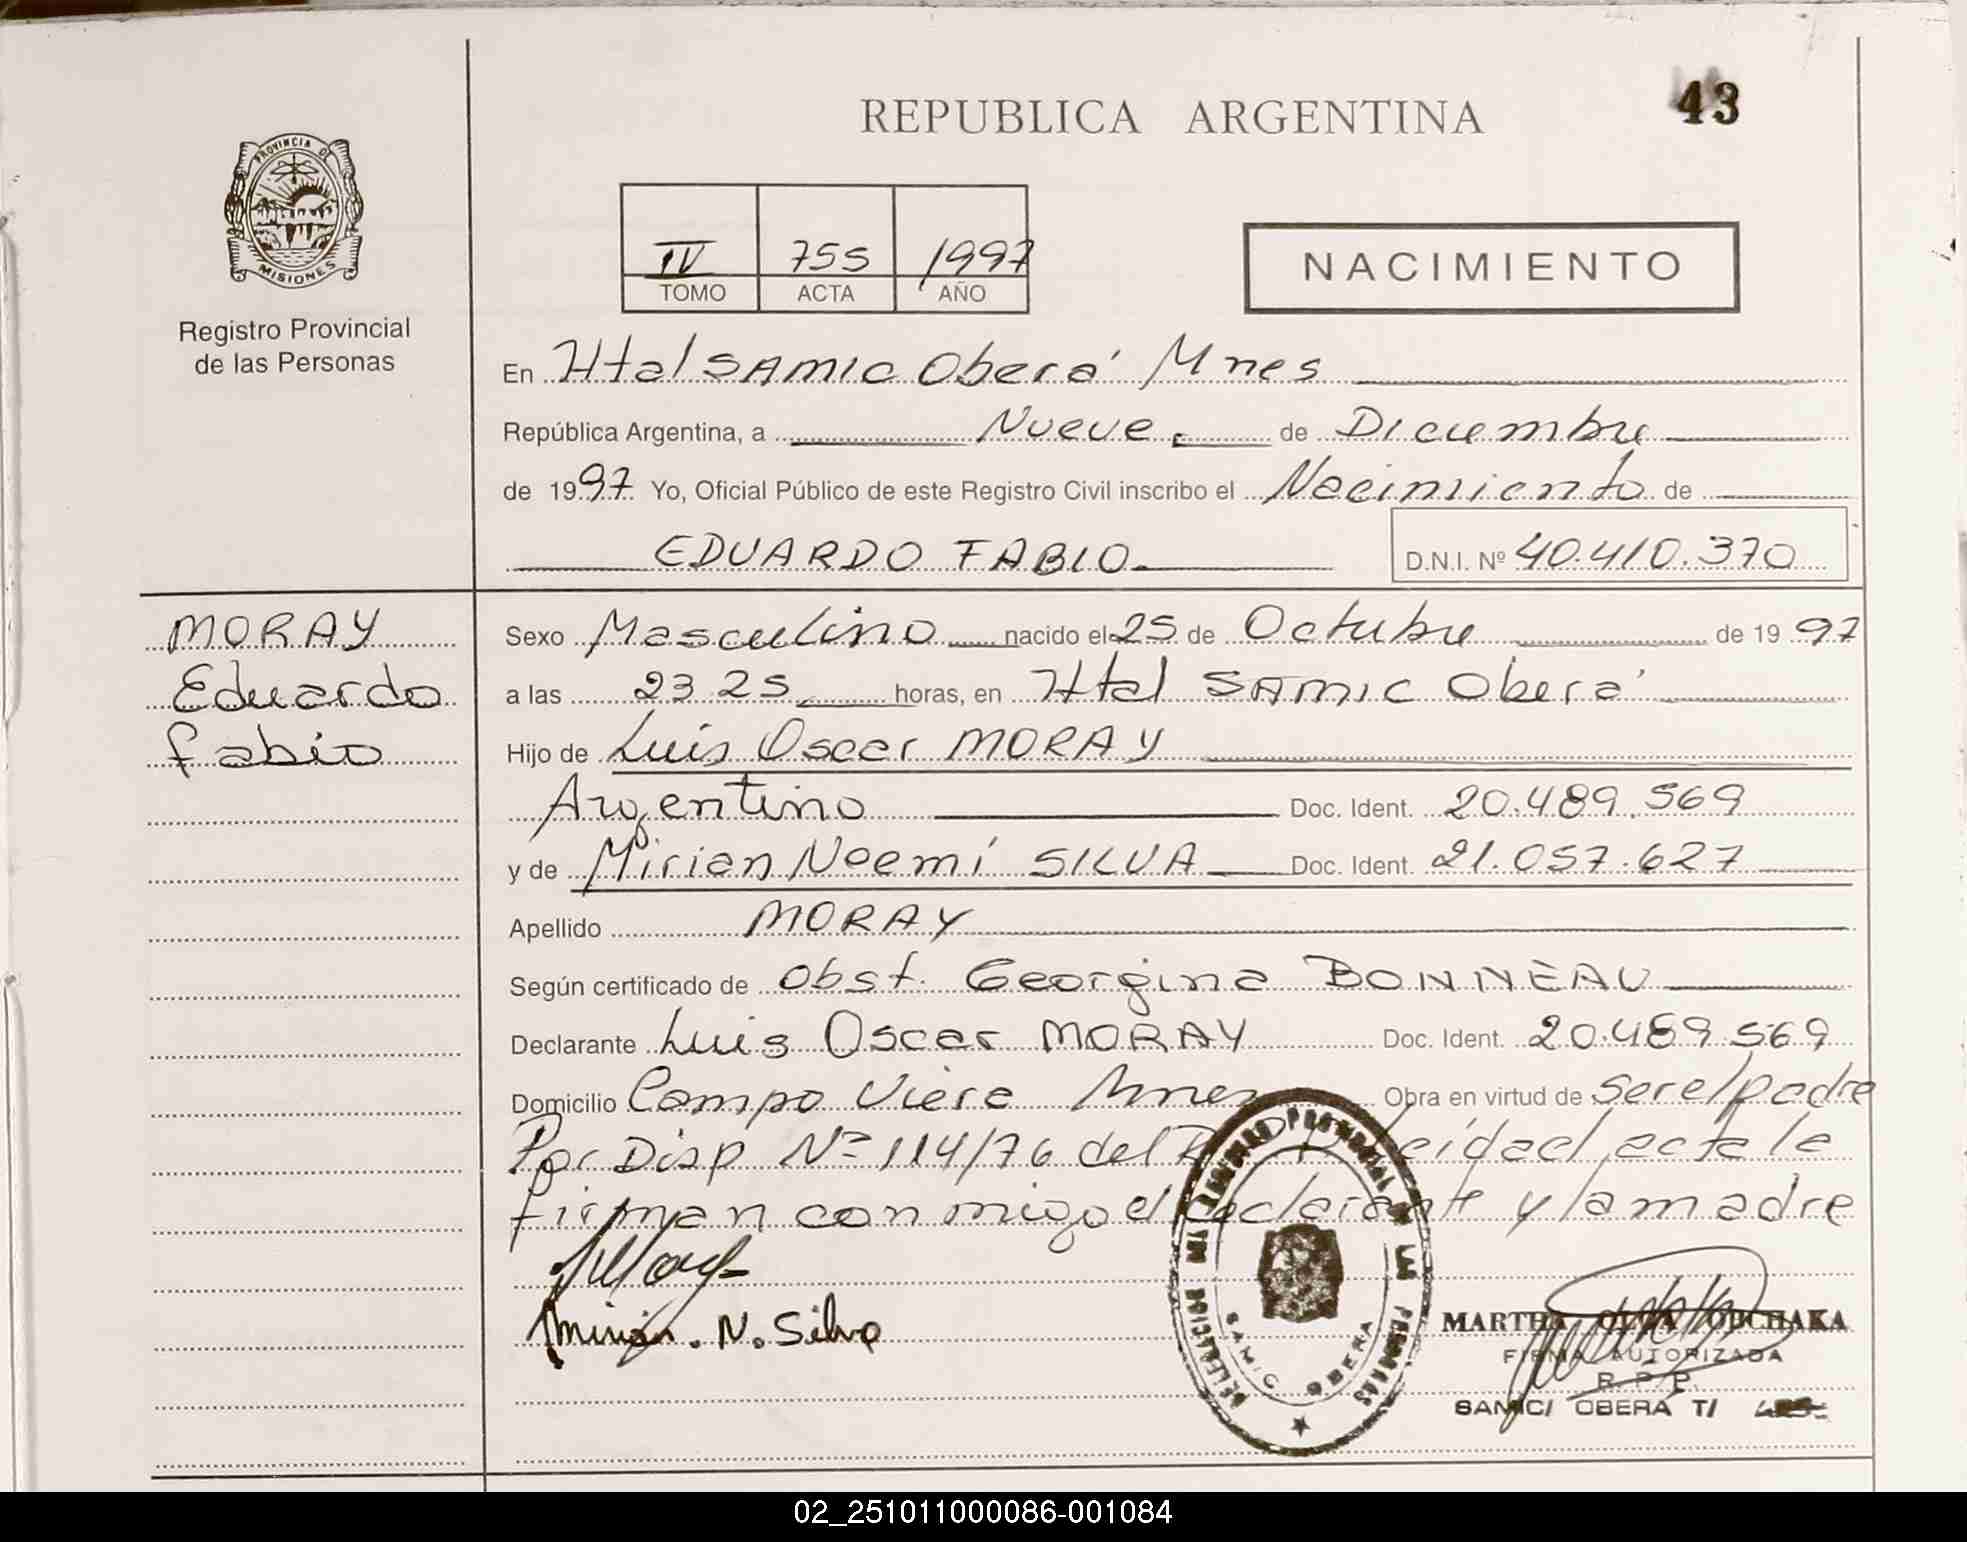 43
REPUBLICA ARGENTINA
PROVINCIA DE
MISIONES
Registro Provincial
de las Personas
IV 755 1997
TOMO ACTA AÑO
NACIMIENTO
En Htal SAMIC Oberá Mnes
República Argentina, a Nueve de Diciembre
de 1997 Yo, Oficial Público de este Registro Civil inscribo el Nacimiento de
EDUARDO FABIO D.N.I. Nº 40.410.370
MORAY
Eduardo
Fabio
Sexo Masculino nacido el 25 de Octubre de 1997
a las 23 25 horas, en Htal SAMIC Oberá
Hijo de Luis Oscar MORAY
Argentino Doc. Ident. 20.489.569
y de Mirian Noemí SILVA Doc. Ident. 21.057.627
Apellido MORAY
Según certificado de Obst. Georgina BONNEAU
Declarante Luis Oscar MORAY Doc. Ident. 20.489.569
Domicilio Campo Viera Mnes Obra en virtud de ser el padre
Por Disp Nº 114/76 del leída el acta la
firman conmigo el declarante y la madre
Mirian. N. Silva
DELEGACION DEL REGISTRO PROVINCIAL DE LAS PERSONAS
SAMIC OBERA
MARTHA OBCHAKA
FIRMA AUTORIZADA
R. P. P.
SAMIC/ OBERA T/
02_251011000086-001084